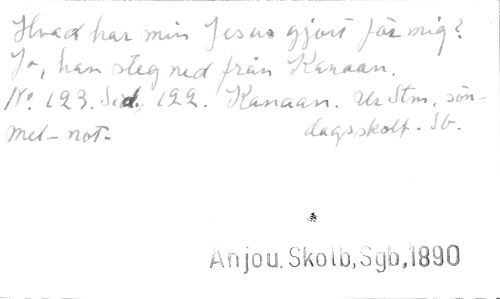 Hvad har min Jesus gjort för mig?
Jo, han steg ned från Kanaan.
No. 123. Sid. 122. Kanaan. Ur Stm, sön-
mel-not. dagsskolf. Sb.
Anjou. Skolb, Sgb, 1890